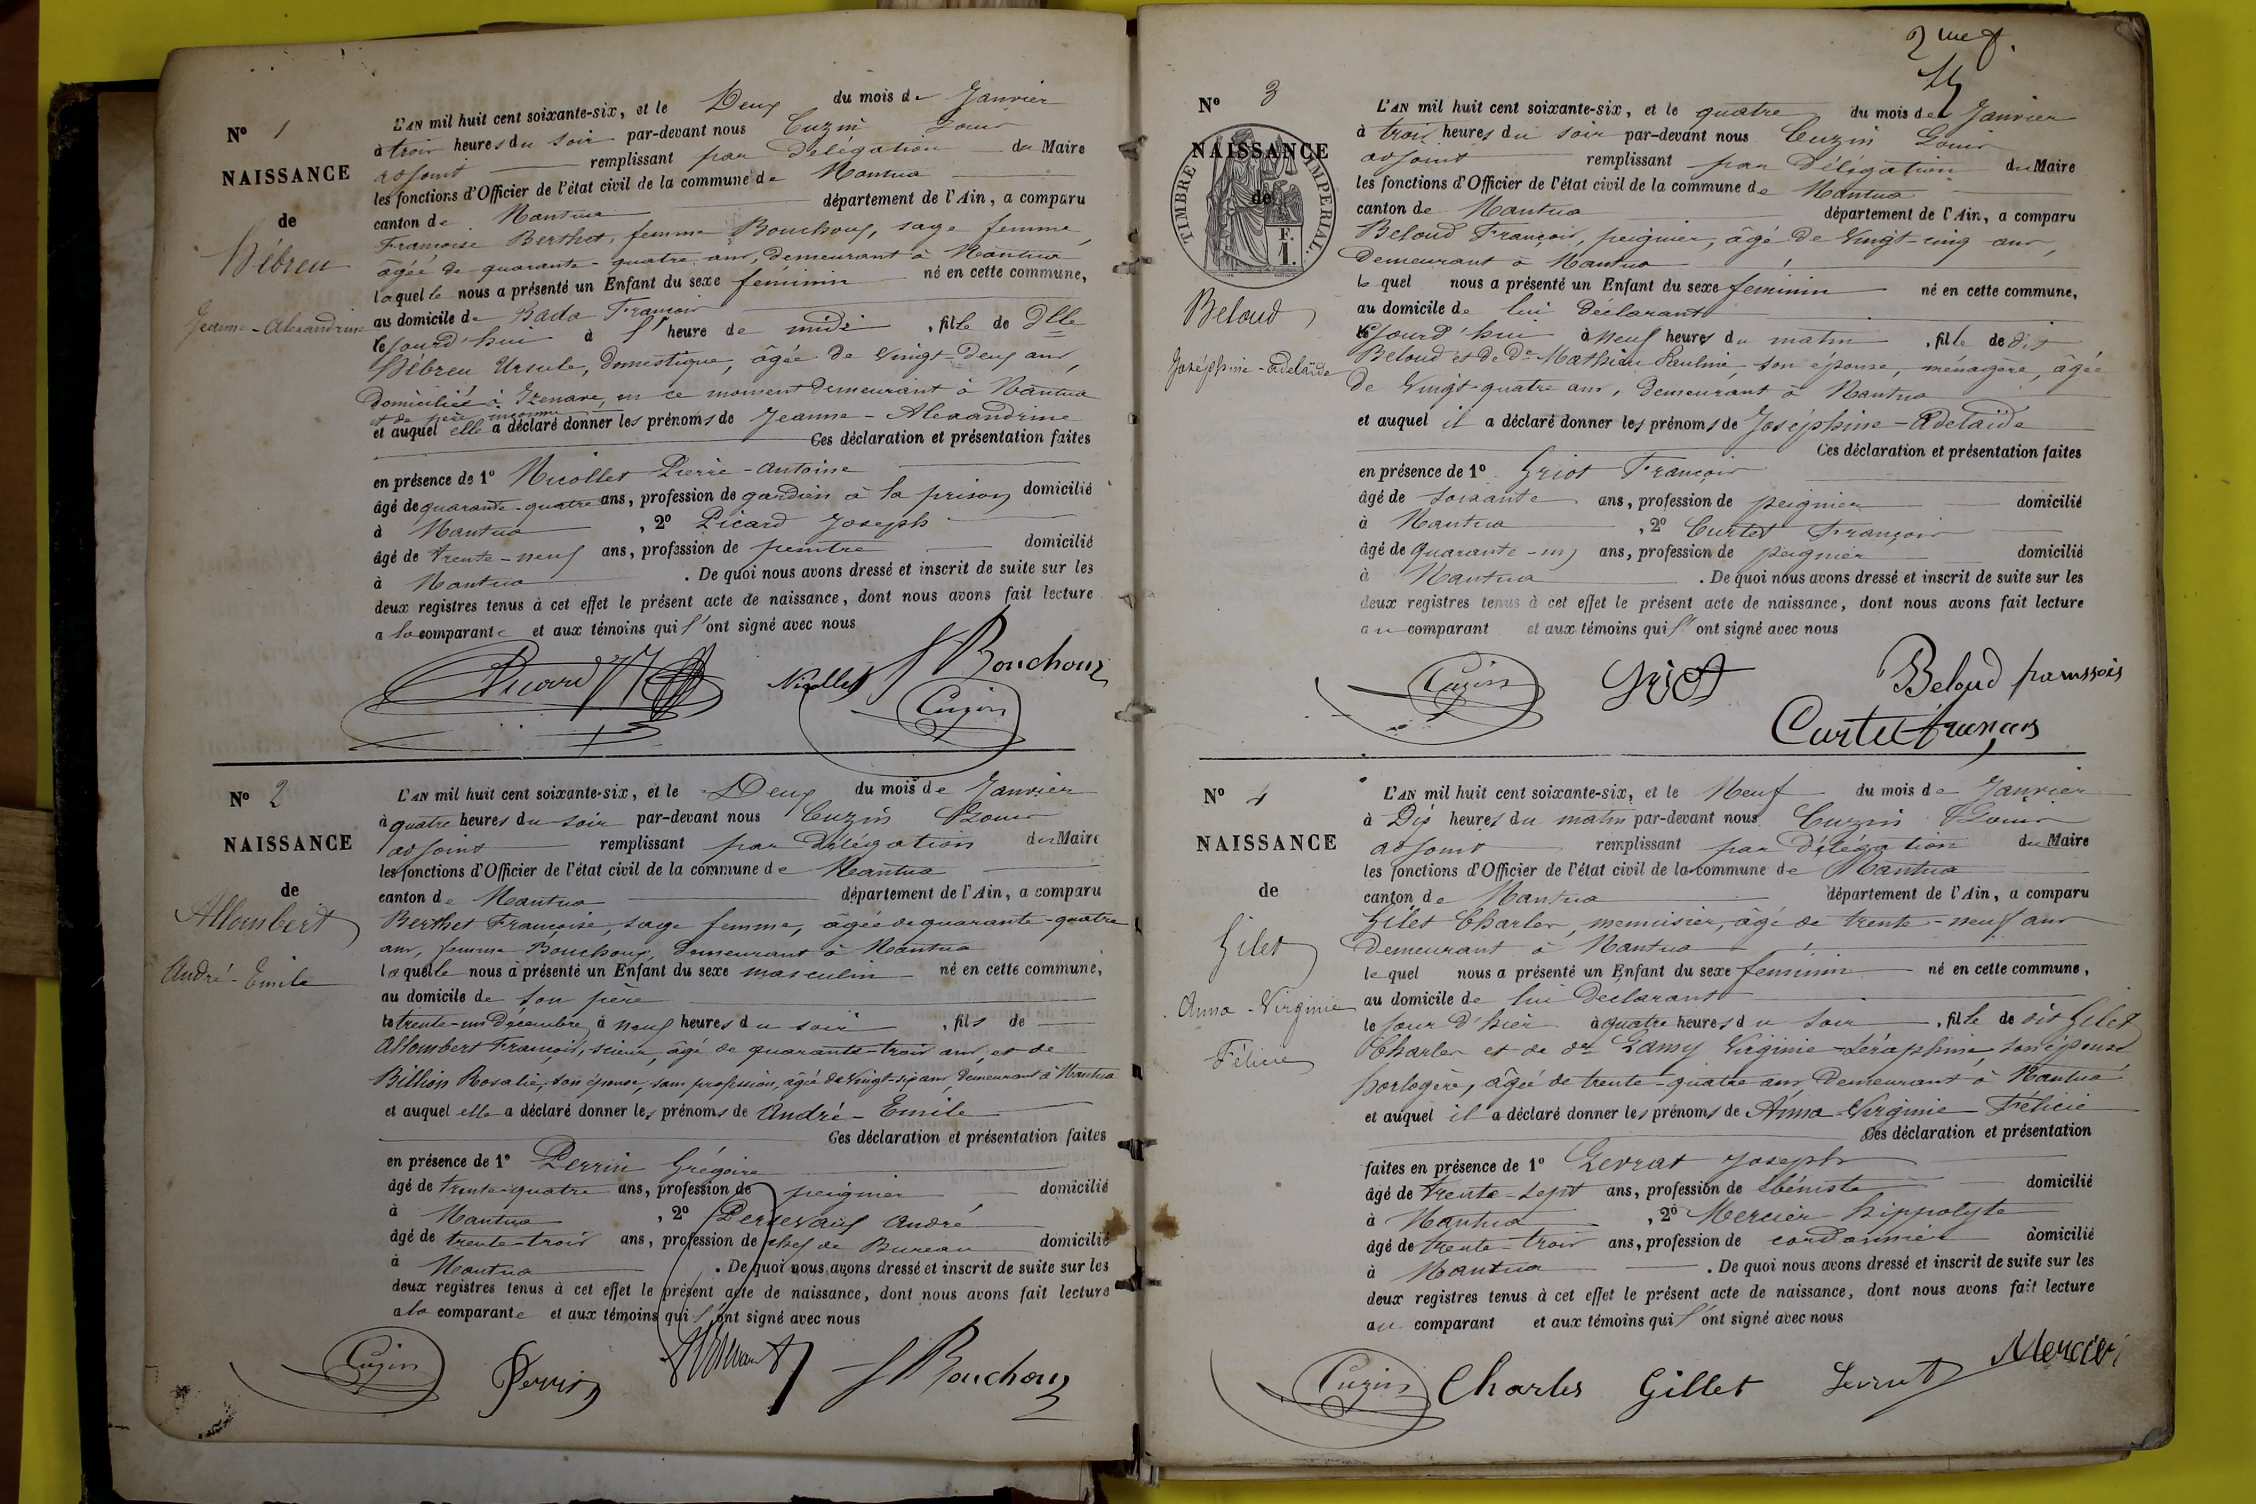 N° 1
NAISSANCE
de
Débreu
Jeanne-Alexandrine
L'AN mil huit cent soixante-six, et le Deux du mois de Janvier
à trois heures du soir par-devant nous Cuzin Louis
adjoint remplissant par Délégation du Maire
les fonctions d'Officier de l'état civil de la commune de Nantua
canton de Nantua département de l'Ain, a comparu
Françoise Berthet, femme Bouchoux, sage femme,
âgée de quarante-quatre ans, demeurant à Nantua
laquelle nous a présenté un Enfant du sexe féminin né en cette commune,
au domicile de Bada François
le jourd'hui à l'heure de midi, fille de Dlle
Débreu Ursule, Domestique, âgée de Vingt-Deux ans,
domiciliée à Izenave, en ce moment demeurant à Nantua
et de père inconnu
et auquel elle a déclaré donner les prénoms de Jeanne-Alexandrine
Ces déclaration et présentation faites
en présence de 1° Nicollet Pierre-Antoine
âgé de quarante-quatre ans, profession de gardien à la prison domicilié
à Nantua, 2° Picard Joseph
âgé de trente-neuf ans, profession de peintre domicilié
à Nantua. De quoi nous avons dressé et inscrit de suite sur les
deux registres tenus à cet effet le présent acte de naissance, dont nous avons fait lecture
a la comparante et aux témoins qui l'ont signé avec nous
Picard Nicollet f Bouchoux
Cuzin
N° 2
NAISSANCE
de
Allombert
André-Emile
L'AN mil huit cent soixante-six, et le Deux du mois de Janvier
à quatre heures du soir par-devant nous Cuzin Louis
adjoint remplissant par délégation du Maire
les fonctions d'Officier de l'état civil de la commune de Nantua
canton de Nantua département de l'Ain, a comparu
Berthet Françoise, sage femme, âgée de quarante-quatre
ans, femme Bouchoux, demeurant à Nantua
laquelle nous a présenté un Enfant du sexe masculin né en cette commune,
au domicile de son père
le trente-un Décembre à neuf heures du soir, fils de
Allombert François, scieur, âgé de quarante-trois ans, et de
Billion Rosalie, son épouse, sans profession, âgée de Vingt-six ans, demeurant à Nantua
et auquel elle a déclaré donner les prénoms de André-Emile
Ces déclaration et présentation faites
en présence de 1° Perrin Grégoire
âgé de trente-quatre ans, profession de peignier domicilié
à Nantua, 2° André
âgé de trente-trois ans, profession de chef de Bureau domicilié
à Nantua. De quoi nous avons dressé et inscrit de suite sur les
deux registres tenus à cet effet le présent acte de naissance, dont nous avons fait lecture
a la comparante et aux témoins qui l'ont signé avec nous
Cuzin Perrin f Bouchoux
2me f.
N° 3
NAISSANCE
de
TIMBRE IMPERIAL
F.
1.
Beloud
Joséphine-Adelaïde
L'AN mil huit cent soixante-six, et le quatre du mois de Janvier
à trois heures du soir par-devant nous Cuzin Louis
adjoint remplissant par Délégation du Maire
les fonctions d'Officier de l'état civil de la commune de Nantua
canton de Nantua département de l'Ain, a comparu
Beloud François, peignier, âgé de Vingt-cinq ans,
Demeurant à Nantua
lequel nous a présenté un Enfant du sexe féminin né en cette commune,
au domicile de lui déclarant
le jourd'hui à neuf heures du matin, fille de dit
Beloud et de De Mathieu Pauline, son épouse, ménagère, âgée
de Vingt-quatre ans, demeurant à Nantua
et auquel il a déclaré donner les prénoms de Joséphine-Adelaïde
Ces déclaration et présentation faites
en présence de 1° Griot François
âgé de soixante ans, profession de peignier domicilié
à Nantua, 2° Curtet François
âgé de quarante-un ans, profession de peignier domicilié
à Nantua. De quoi nous avons dressé et inscrit de suite sur les
deux registres tenus à cet effet le présent acte de naissance, dont nous avons fait lecture
au comparant et aux témoins qui l'ont signé avec nous
Cuzin Griot Beloud franssois
Curtet françois
N° 4
NAISSANCE
de
Gilet
Anna-Virginie
Félicie
L'AN mil huit cent soixante-six, et le Neuf du mois de Janvier
à Dix heures du matin par-devant nous Cuzin Louis
adjoint remplissant par Délégation du Maire
les fonctions d'Officier de l'état civil de la commune de Nantua
canton de Nantua département de l'Ain, a comparu
Gilet Charles, menuisier, âgé de trente-neuf ans
Demeurant à Nantua
lequel nous a présenté un Enfant du sexe féminin né en cette commune,
au domicile de lui Déclarant
le jour d'hier à quatre heures du soir, fille de dit Gilet
Charles et de de Lamy Virginie-Séraphine, son épouse
horlogère, âgée de trente-quatre ans, Demeurant à Nantua
et auquel il a déclaré donner les prénoms de Anna-Virginie Félicie
Ces déclaration et présentation
faites en présence de 1° Levrat Joseph
âgé de trente-sept ans, profession de Ebéniste domicilié
à Nantua, 2° Mercier hippolyte
âgé de trente-trois ans, profession de cordonnier domicilié
à Nantua. De quoi nous avons dressé et inscrit de suite sur les
deux registres tenus à cet effet le présent acte de naissance, dont nous avons fait lecture
au comparant et aux témoins qui l'ont signé avec nous
Cuzin Charles Gillet Levrat Mercier